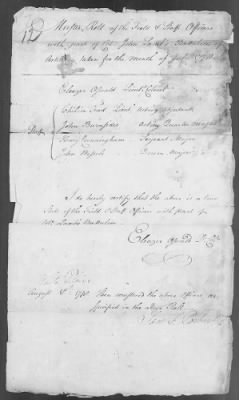 Muster Roll of the Field & Staff Officers
with part of Col. John Lamb's Battalion of
Artily taken for the month of July 1780
Eleazer Oswald Lieut. Colonel
Staff
John Burnsides Acting Quarter Master
Henry Cunningham Serjeant Major
John Drum Major
I do hereby certify that the above is a true
Roll of the Field & Staff Officers with part of
Col. Lamb's Battalion
Eleazer Oswald
August 1780 Then mustered the above Officers as
specified in the above Roll